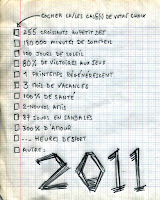 COCHER LA/LES CASE(S) DE VOTRE CHOIX
255 CROISSANTS AU PETIT DEJ
180 000 MINUTES DE SOMMEIL
100 JOURS DE SOLEIL
80% DE VICTOIRES AUX JEUX
1 PRINTEMPS RÉGÉNÉRESCENT
3 MOIS DE VACANCES
100% DE SANTÉ
2 NOUVEAUX AMIS
87 JOURS EN SANDALES
300% D'AMOUR
... HEURES DE SPORT
AUTRE:
2011